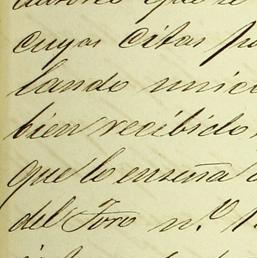 que se
cuyas citas
lando unic
bien recibido
que lo enseña
del Foro n.º 1